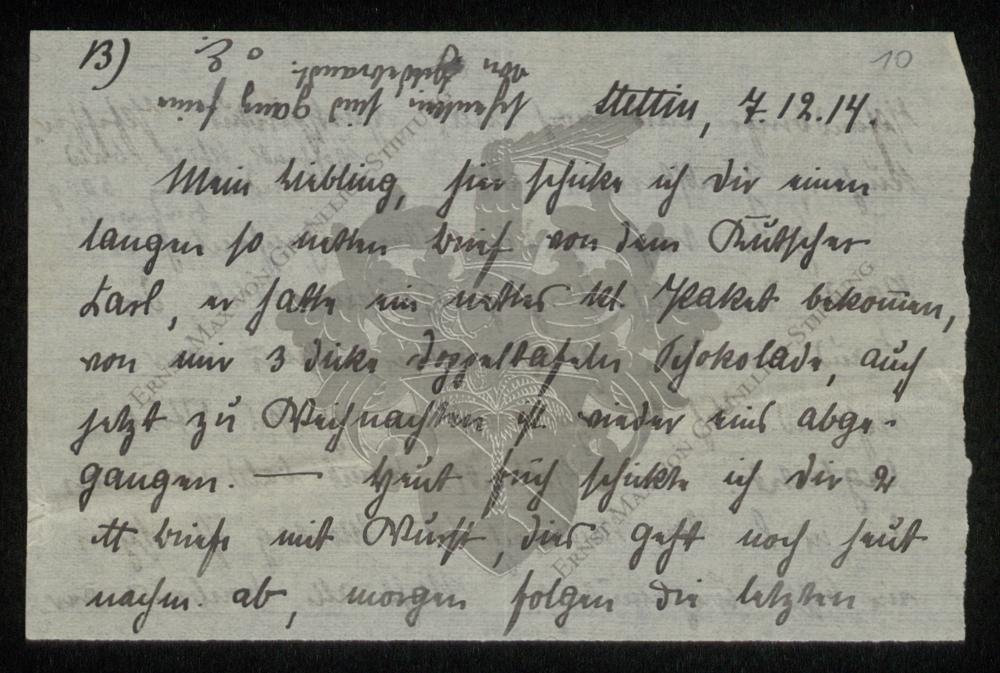 13)
10
Stettin, 7.12.14.
Mein Liebling, hier schicke ich Dir einen
langen so netten Brief von dem Kutscher
Karl, er hatte ein nettes kl. Paket bekommen,
von mir 3 dicke Doppeltafeln Schokolade, auch
jetzt zu Weihnachten ist wieder eins abge-
gangen. — Heut früh schickte ich Dir 2
℔ Briefe mit Wurst, dies geht noch heut
nachm. ab, morgen folgen die letzten
schenken sind ganz feine
von Hildebrandt.
ERNST MAX VON GRANLLIE STIFTUNG
ERNST MAX VON GRANLLIE STIFTUNG